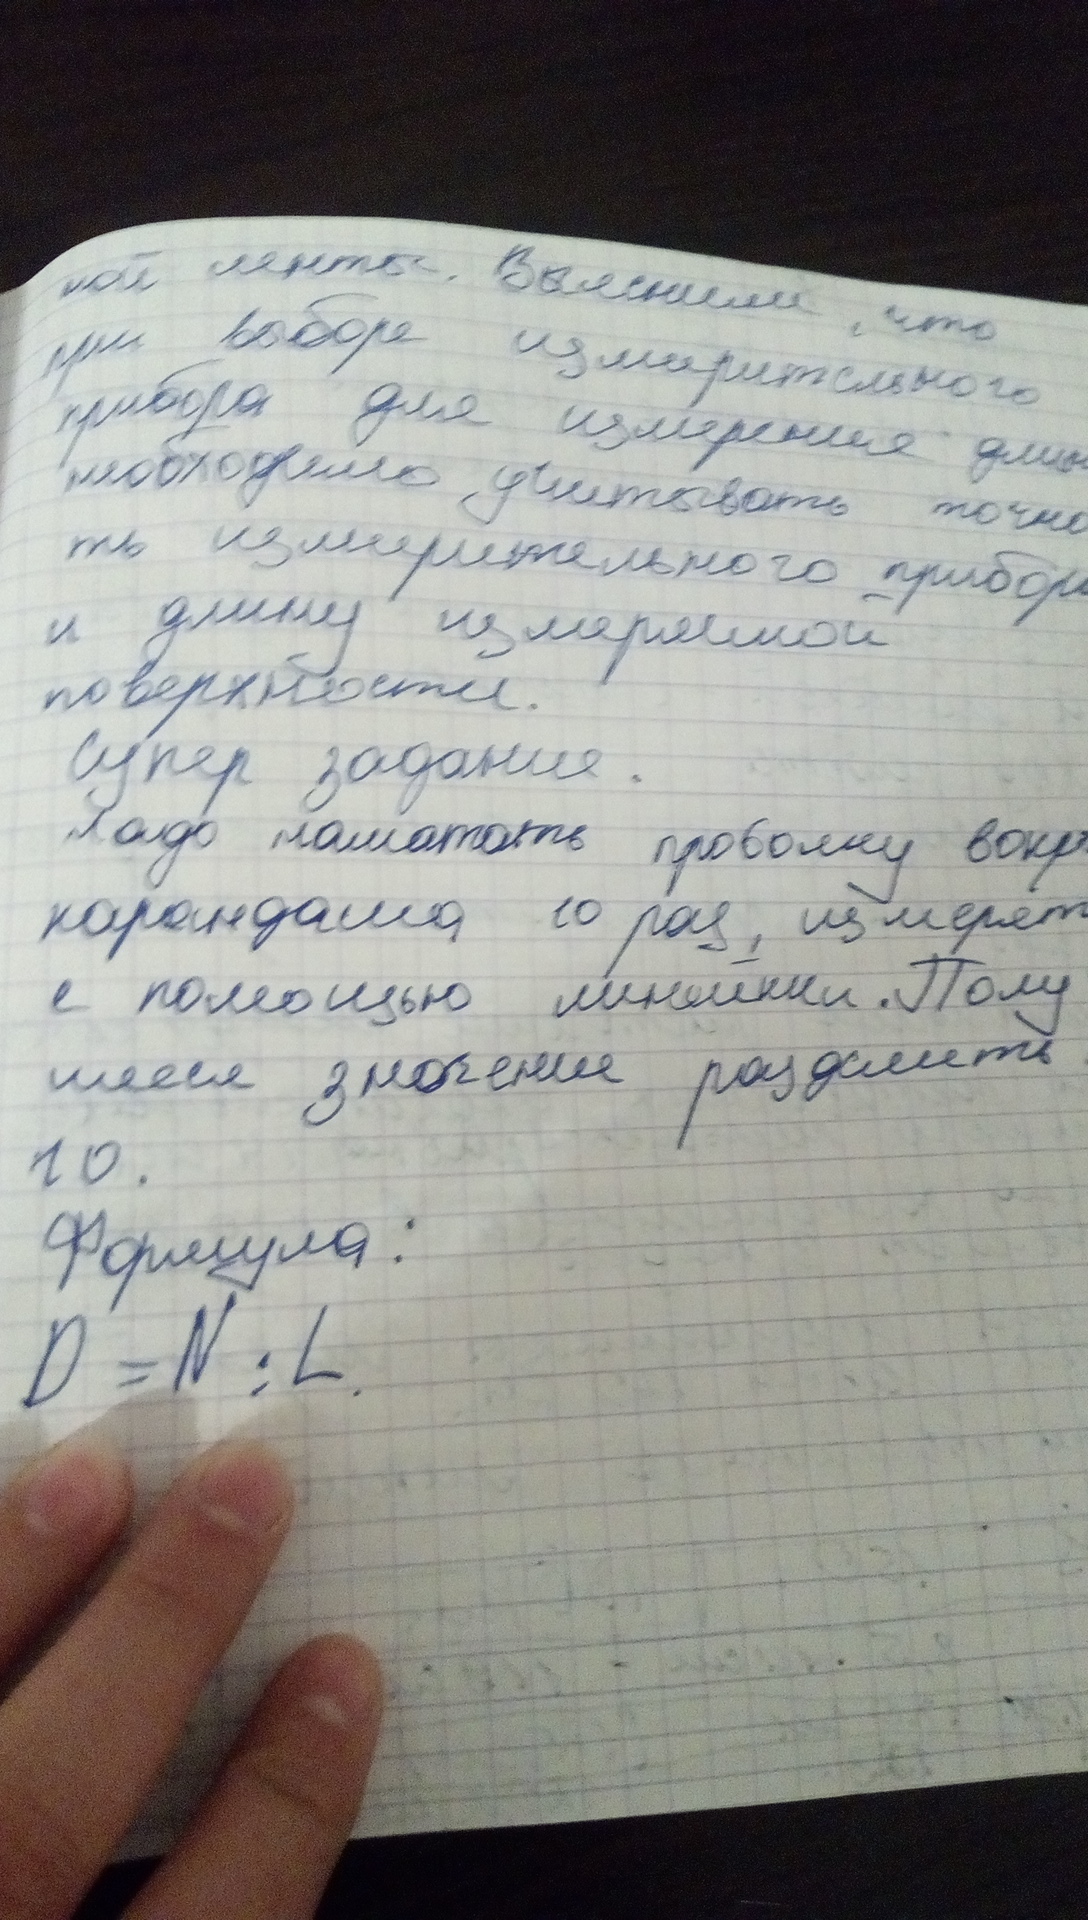 ной ленты. Выяснили, что
при выборе измерительного
прибора для измерения длин
необходимо учитывать точно
ть измерительного прибора
и длину измеряемой
поверхности.
Супер задание.
Надо наматать проволку вокр
карандаша 10 раз, измерят
с помощью линейки. Полу
шееся значение разделить
10.
Формула:
D = N : L.